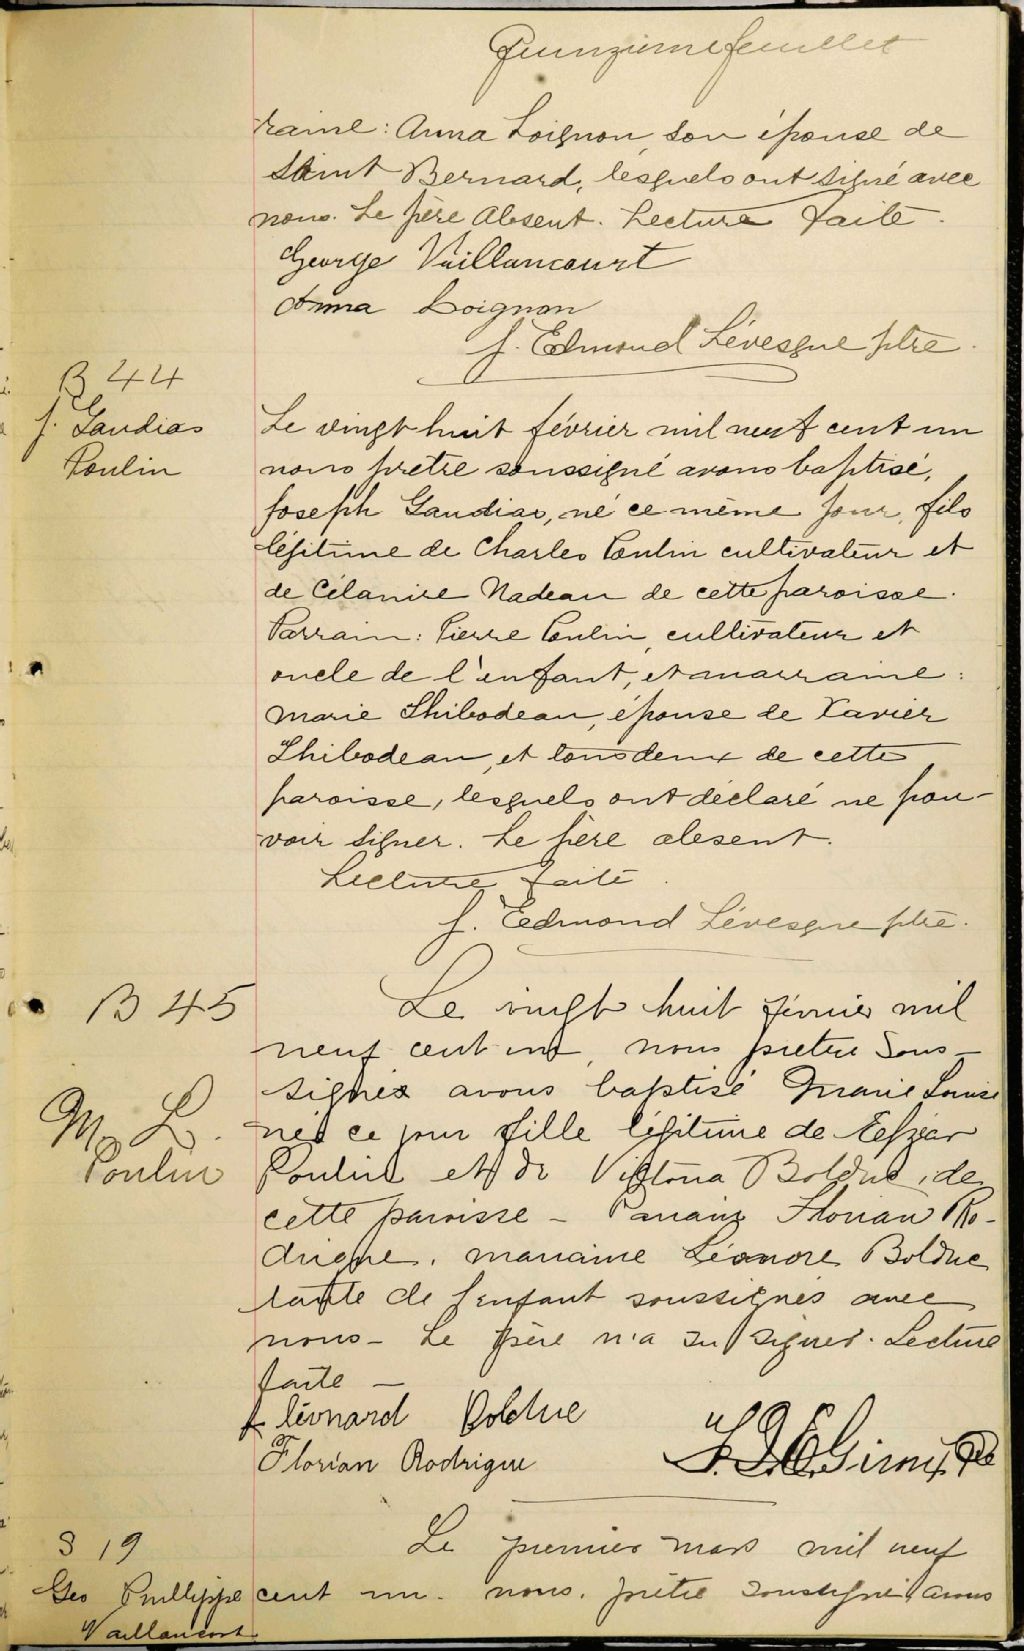 Quinzieme feuillet
raine: Anna Loignon, son épouse de
Saint Bernard, lesquels ont signé avec
nous. Le père absent. Lecture faite.
George Vaillancourt
Anna Loignon
J. Edmond Lévesque ptre.
B 44
J. Gaudias
Poulin
Le vingt huit février mil neuf cent un
nous prêtre soussigné avons baptisé,
Joseph Gaudias, né ce même jour, fils
légitime de Charles Poulin cultivateur et
de Célanire Nadeau de cette paroisse.
Parrain: Pierre Poulin, cultivateur et
oncle de l'enfant, et marraine:
Marie Thibodeau, épouse de Xavier
Thibodeau, et tous deux de cette
paroisse, lesquels ont déclaré ne pou-
voir signer. Le père absent.
Lecture faite.
J. Edmond Lévesque ptre.
B 45
M. L.
Poulin
Le vingt huit février mil
neuf cent un, nous pretre sous-
signé avons baptisé Marie Louise
née ce jour fille légitime de Elzéar
Poulin et de Victoria Bolduc, de
cette paroisse - Parrain Florian Ro-
drigue, marraine Léonore Bolduc
tante de l'enfant soussignés avec
nous - Le père n'a su signer. Lecture
faite -
Bolduc
Florian Rodrigue
S 19
Geo Phillippe
Vaillancourt
Le premier mars mil neuf
cent un. nous, prêtre soussigné, avons